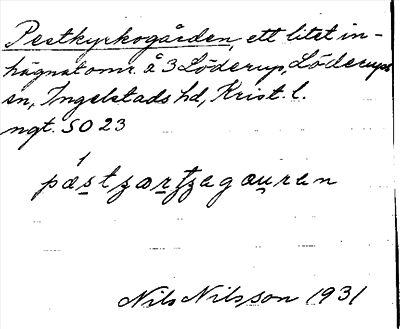 Pestkyrkogården, ett litet in-
hägnat omr. å 3 Löderup, Löderups
sn, Ingelstads hd, Krist. l.
ngt. SO 23
Nils Nilsson 1931